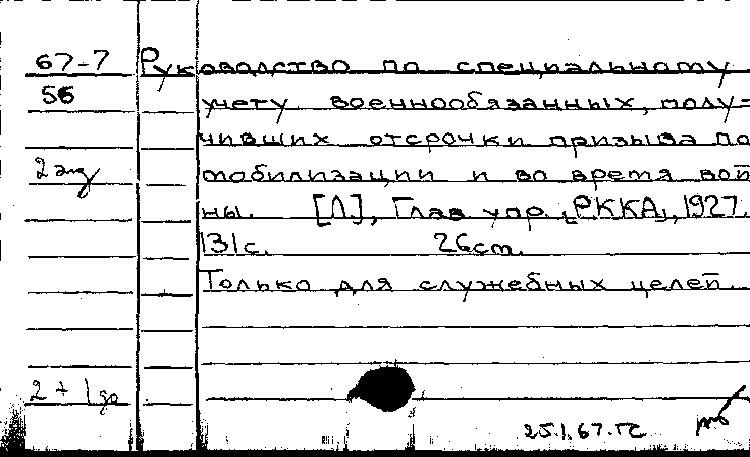 67-7 Руководство по специальному
56 учету военнообязанных, полу=
чивших отсрочки призыва по
2 экз мобилизации и во время вой
ны. [Л.], Глав. упр. „РККА", 1927.
131с. 26см.
Только для служебных целей.
2 + 1
25.1.67.ГС